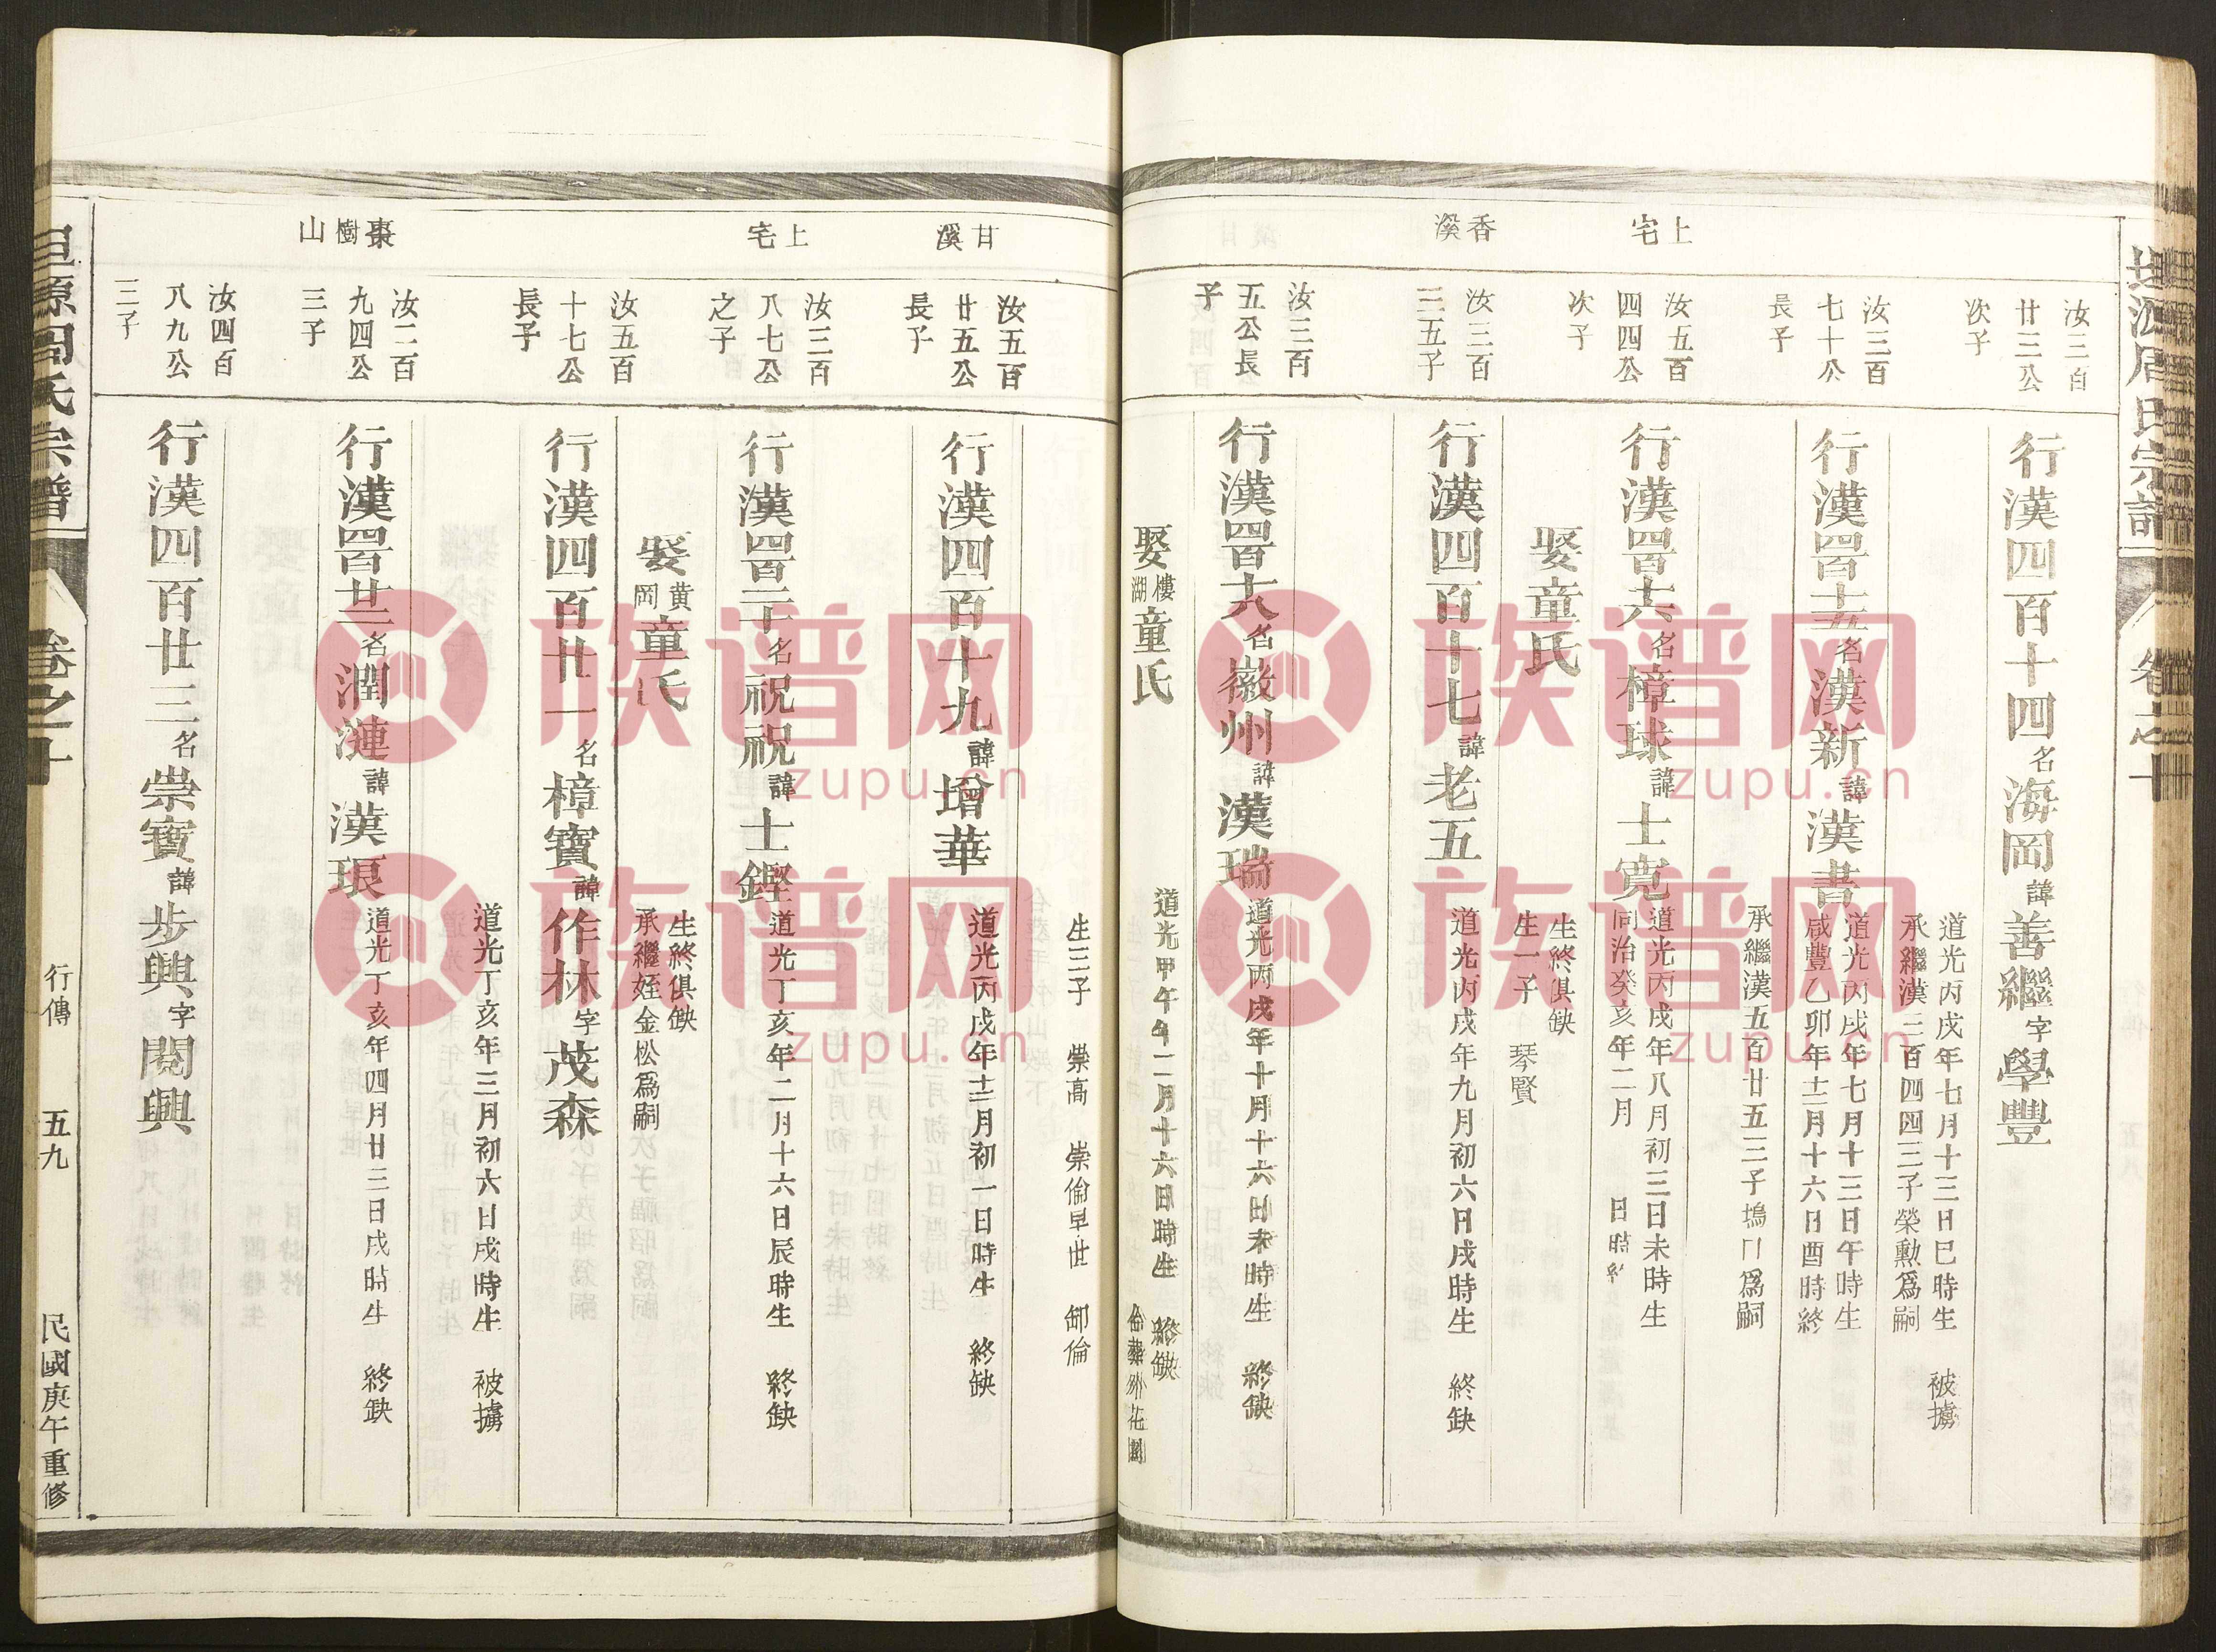 周氏宗譜
卷之十
汝三百
廿三公
次子
行漢四百十四名海岡諱善繼字學豐
道光丙戌年七月十三日巳時生 被擄
承繼漢三百四四三子榮勲爲嗣
汝三百
七十公
長子
行漢四百十五名漢新諱漢書
道光丙戌年七月十三日午時生
咸豐乙卯年十二月十六日酉時終
承繼漢五百廿五三子塢口爲嗣
上宅
汝五百
四四公
次子
行漢四百十六名樟球諱士寬
道光丙戌年八月初三日未時生
同治癸亥年二月 日時終
娶童氏
生終俱缺
生一子 琴賢
香溪
汝三百
三五子
行漢四百十七諱老五
道光丙戌年九月初六日戌時生 終缺
汝三百
五公長
子
行漢四百十八名徽州諱漢瑞
道光丙戌年十月十六日未時生 終缺
娶樓湖童氏
道光甲午年二月十六日時生 終缺
生三子 崇高 崇倫早世 卸倫
甘溪
汝五百
廿五公
長子
行漢四百十九諱增華
道光丙戌年十二月初一日時生 終缺
上宅
汝三百
八七公
之子
行漢四百二十名祝祝諱士鏗
道光丁亥年二月十六日辰時生 終缺
娶黄岡童氏
生終俱缺
承繼姪金松爲嗣
汝五百
十七公
長子
行漢四百廿一名樟寶諱作林字茂森
道光丁亥年三月初六日戌時生 被擄
棗樹山
汝二百
九四公
三子
行漢四百廿二名潤漣諱漢珢
道光丁亥年四月廿三日戌時生 終缺
汝四百
八九公
三子
行漢四百廿三名崇寶諱步興字閱興
源周氏宗譜
卷之十
行傳
五九
民國庚午重修